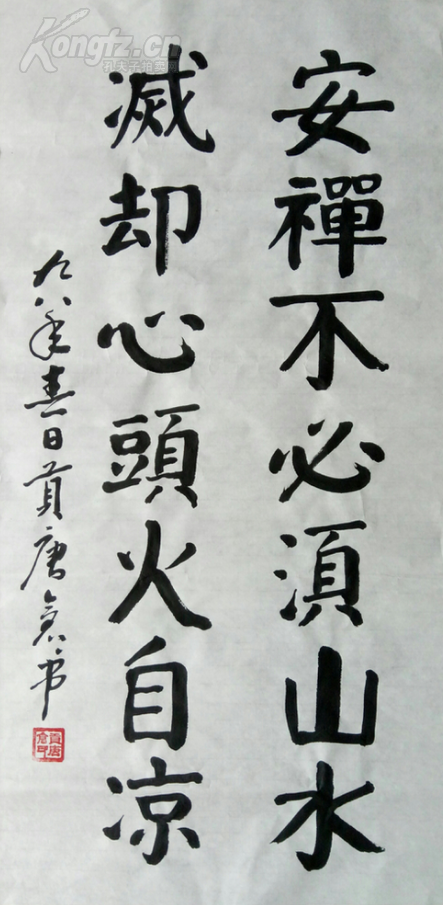 Kongfz.cn
孔夫子拍卖网
安禪不必須山水
滅却心頭火自凉
九八年春日貢唐倉书